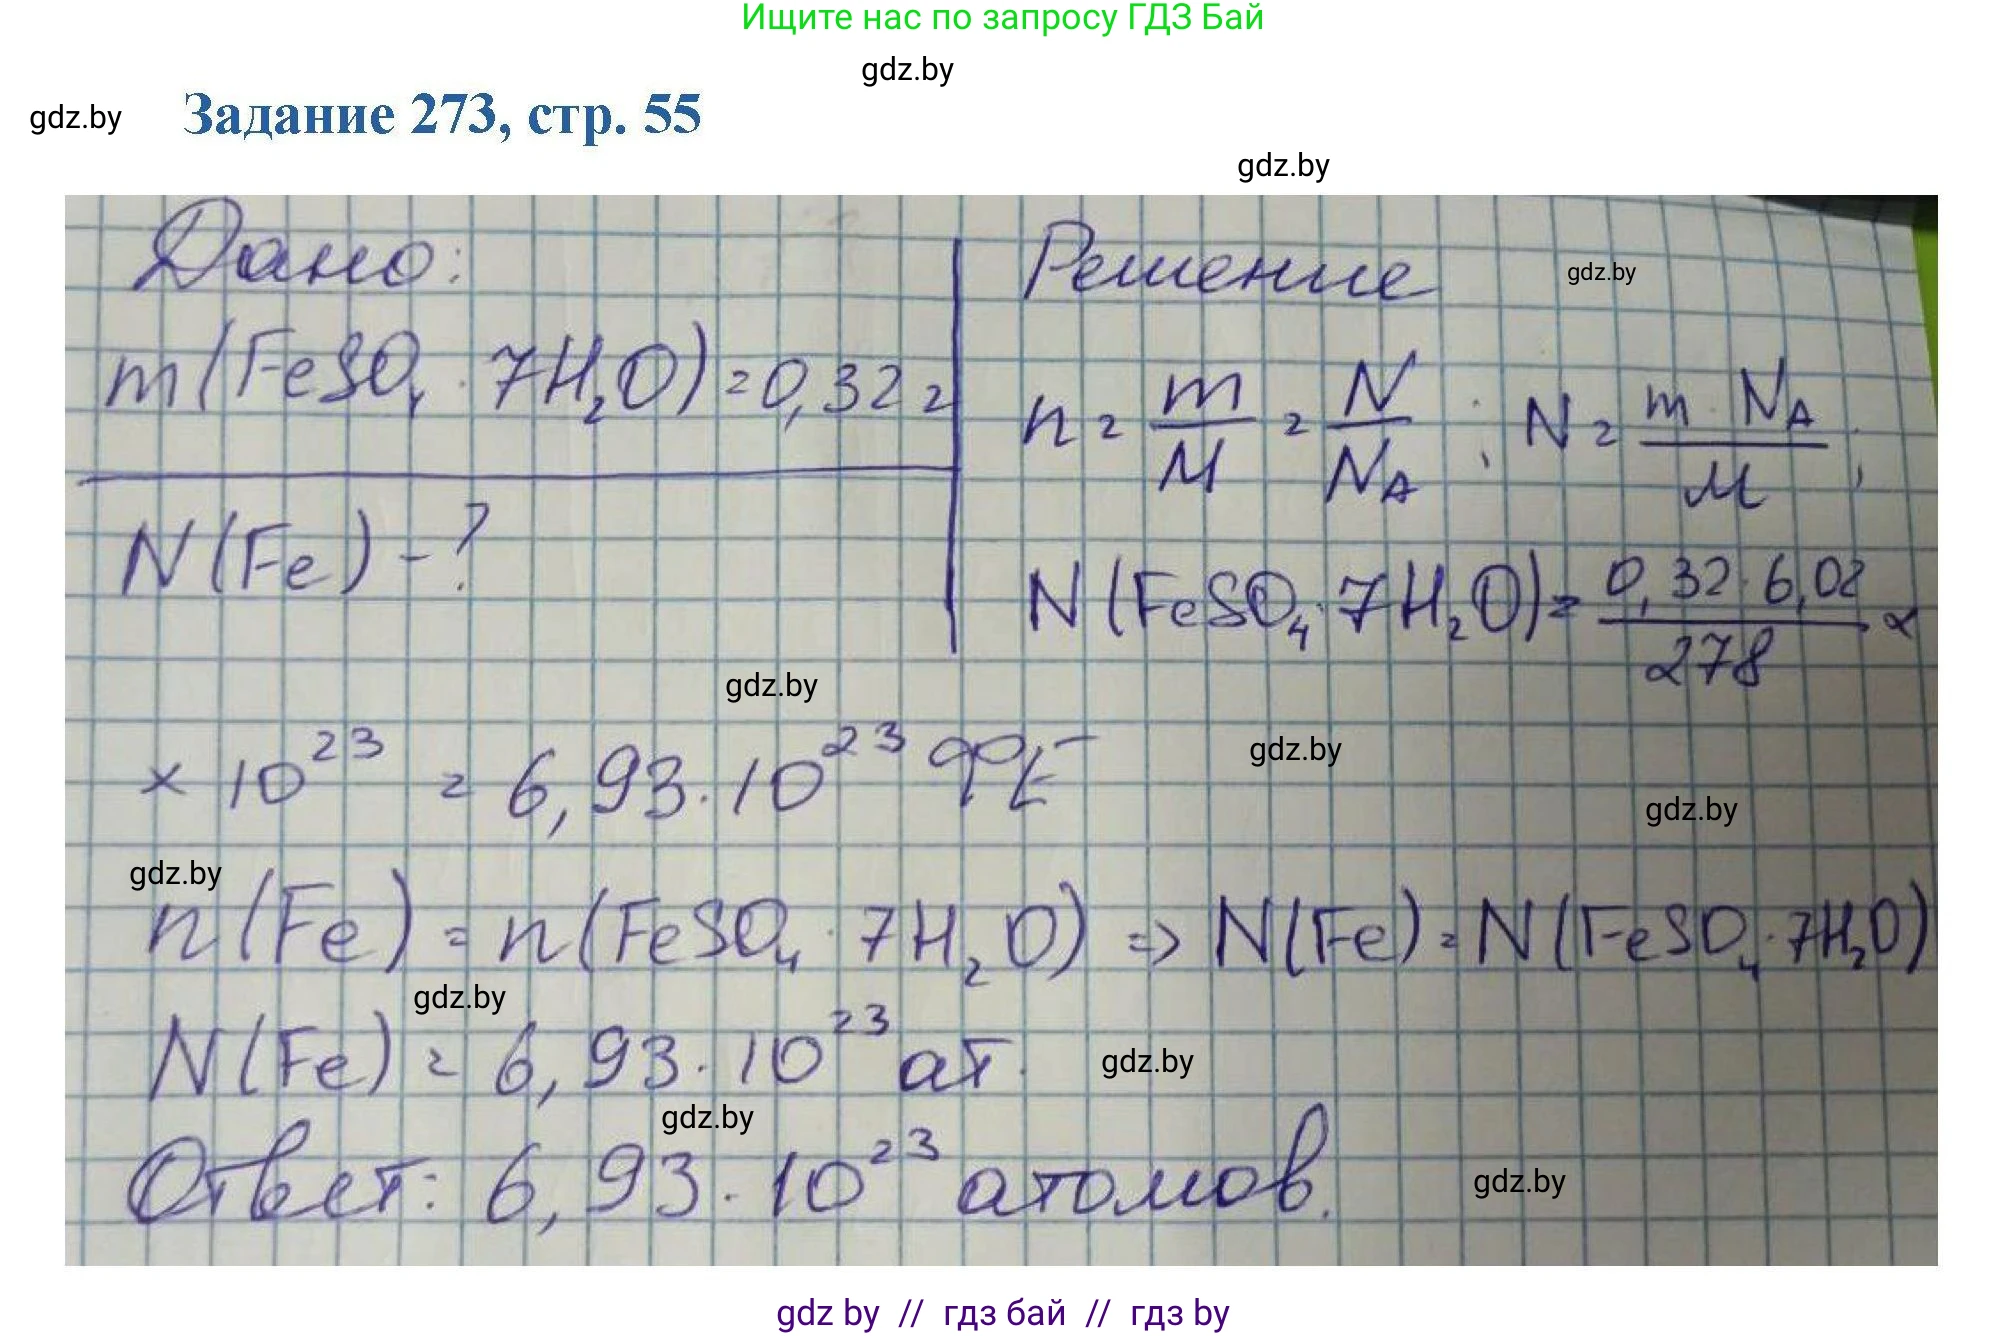 Ищите нас по запросу ГДЗ Бай
gdz.by
gdz.by Задание 273, стр. 55
gdz.by
Дано:
m(FeSO₄ · 7H₂O) = 0,32 г
N(Fe) - ?
Решение
gdz.by
n = m/M = N/N_A ; N = m · N_A / M ;
N(FeSO₄ · 7H₂O) = 0,32 · 6,02 / 278 ×
gdz.by
× 10²³ = 6,93 · 10²³ ФЕ
gdz.by
gdz.by
gdz.by
n(Fe) = n(FeSO₄ · 7H₂O) => N(Fe) = N(FeSO₄ · 7H₂O)
gdz.by
N(Fe) = 6,93 · 10²³ ат.
gdz.by
gdz.by
Ответ: 6,93 · 10²³ атомов.
gdz.by
gdz by // гдз бай // гдз by